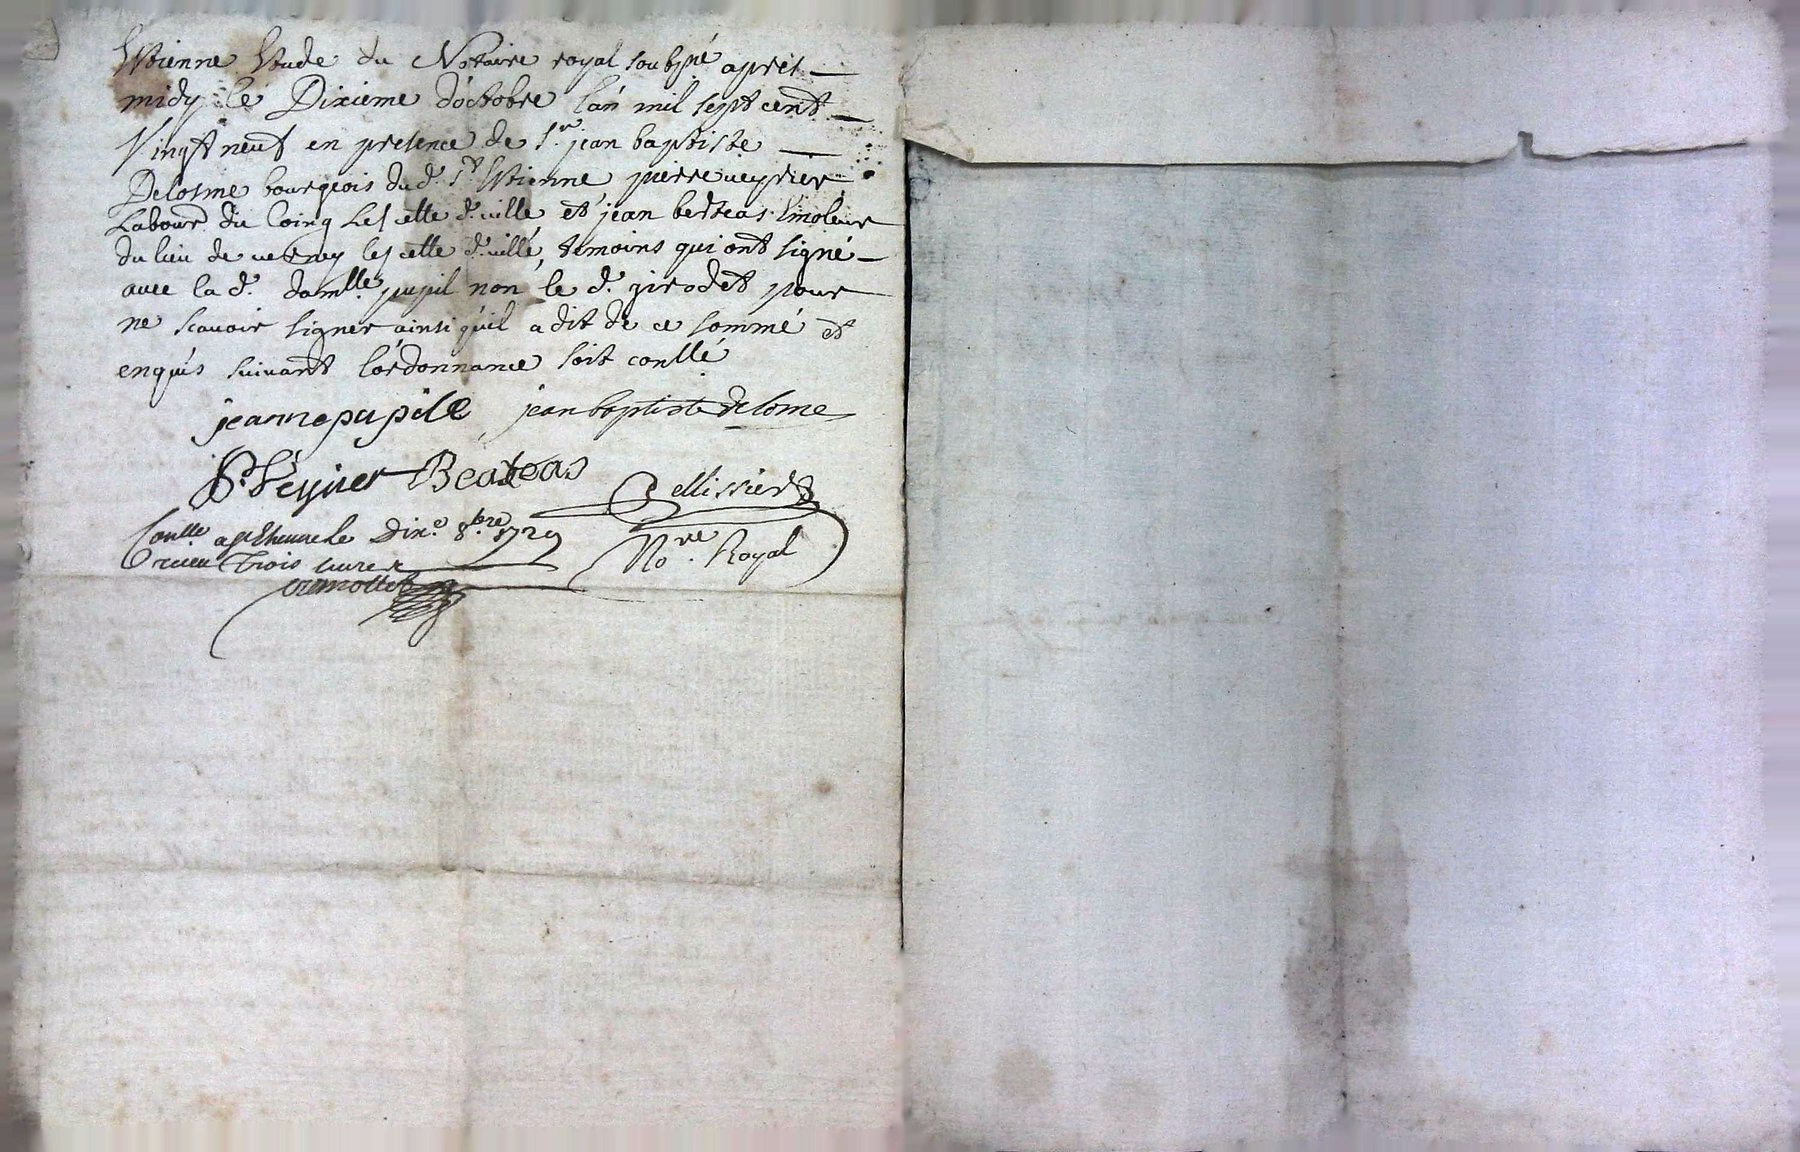 Etienne Etude du Notaire royal soubsné apres
midy le Dixieme d'octobre l'an mil sept cent
Vingt neuf en presence de Sr. jean baptiste
Delosme bourgeois dud. St Etienne pierre veyrier
Labourr. du Coing Les cette d. ville et jean berteas Emoleur
du lieu de verney les cette d. ville, temoins qui ont signé
avec la d. damlle. pupil non le d. girodet pour
ne scavoir signer ainsi qu'il a dit de ce sommé et
enquis suivant l'ordonnance soit conllé
jeanne pupile jean baptiste delome
P. Veyrier Beateas
Pellissier
Conlle a St Etienne le Dixe. 8bre. 1729
No.re Royal
Receu Trois livres